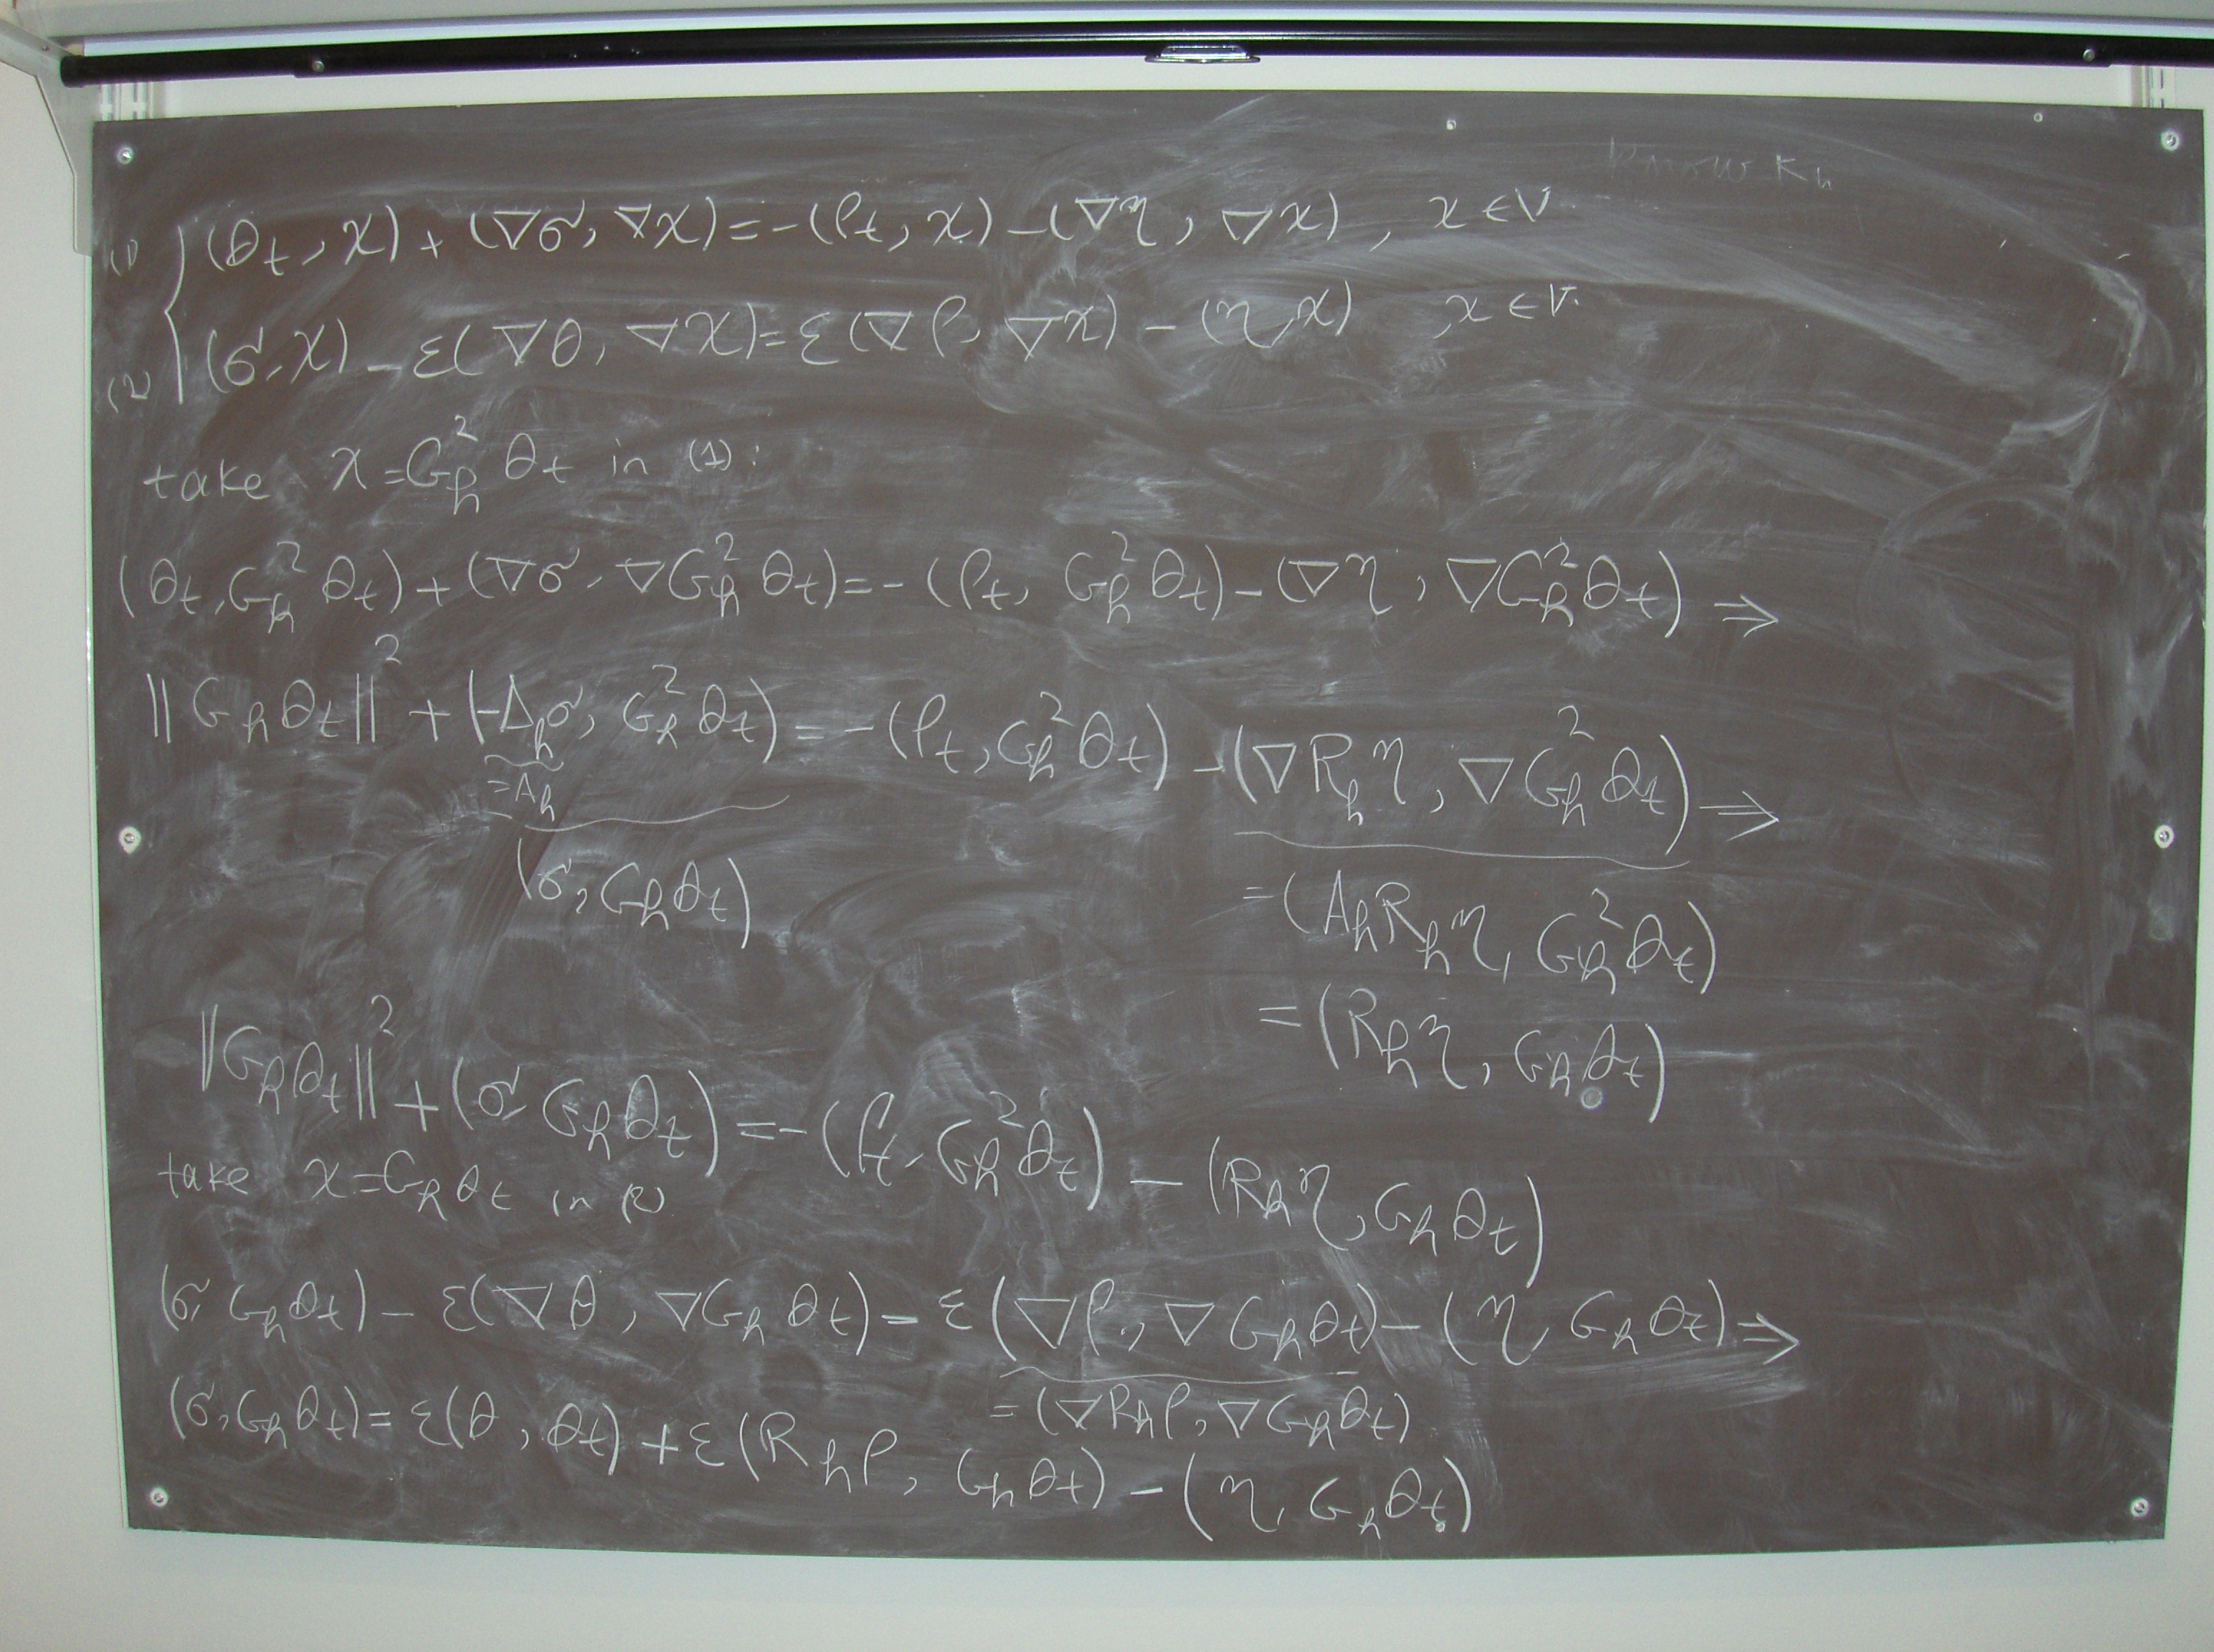 know Kh
(1) { (θ_t, χ) + (∇σ, ∇χ) = -(ρ_t, χ) - (∇η, ∇χ) , χ ∈ V
(2) (σ, χ) - ε(∇θ, ∇χ) = ε(∇ρ, ∇χ) - (η, χ) , χ ∈ V.
take χ = G_h^2 θ_t in (1):
(θ_t, G_h^2 θ_t) + (∇σ, ∇G_h^2 θ_t) = -(ρ_t, G_h^2 θ_t) - (∇η, ∇G_h^2 θ_t) ⇒
||G_h θ_t||^2 + (-Δ_h σ, G_h^2 θ_t) = -(ρ_t, G_h^2 θ_t) - (∇R_h η, ∇G_h^2 θ_t) ⇒
= A_h
(σ, G_h θ_t)
= (A_h R_h η, G_h^2 θ_t)
= (R_h η, G_h θ_t)
||G_h θ_t||^2 + (σ, G_h θ_t) = -(ρ_t, G_h^2 θ_t) - (R_h η, G_h θ_t)
take χ = G_h θ_t in (2)
(σ, G_h θ_t) - ε(∇θ, ∇G_h θ_t) = ε(∇ρ, ∇G_h θ_t) - (η, G_h θ_t) ⇒
= (∇R_h ρ, ∇G_h θ_t)
(σ, G_h θ_t) = ε(θ, θ_t) + ε(R_h ρ, G_h θ_t) - (η, G_h θ_t)